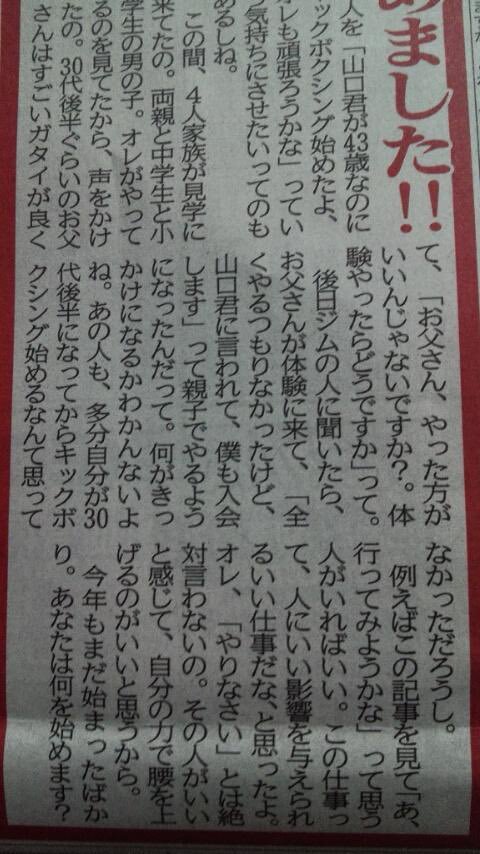 めました!!
人を「山口君が43歳なのに
ックボクシング始めたよ、
オレも頑張ろうかな」ってい
う気持ちにさせたいってのも
あるしね。
この間、4人家族が見学に
来てたの。両親と中学生と小
学生の男の子。オレがやって
るのを見てたから、声をかけ
たの。30代後半ぐらいのお父
さんはすごいガタイが良く
て、「お父さん、やった方が
いいんじゃないですか?。体
験やったらどうですか」って。
後日ジムの人に聞いたら、
お父さんが体験に来て、「全
くやるつもりなかったけど、
山口君に言われて、僕も入会
します」って親子でやるよう
になったんだって。何がきっ
かけになるかわかんないよ
ね。あの人も、多分自分が30
代後半になってからキックボ
クシング始めるなんて思って
なかっただろうし。
例えばこの記事を見て「あ、
行ってみようかな」って思う
人がいればいい。この仕事っ
て、人にいい影響を与えられ
るいい仕事だな、と思ったよ。
オレ、「やりなさい」とは絶
対言わないの。その人がいい
と感じて、自分の力で腰を上
げるのがいいと思うから。
今年もまだ始まったばか
り。あなたは何を始めます?